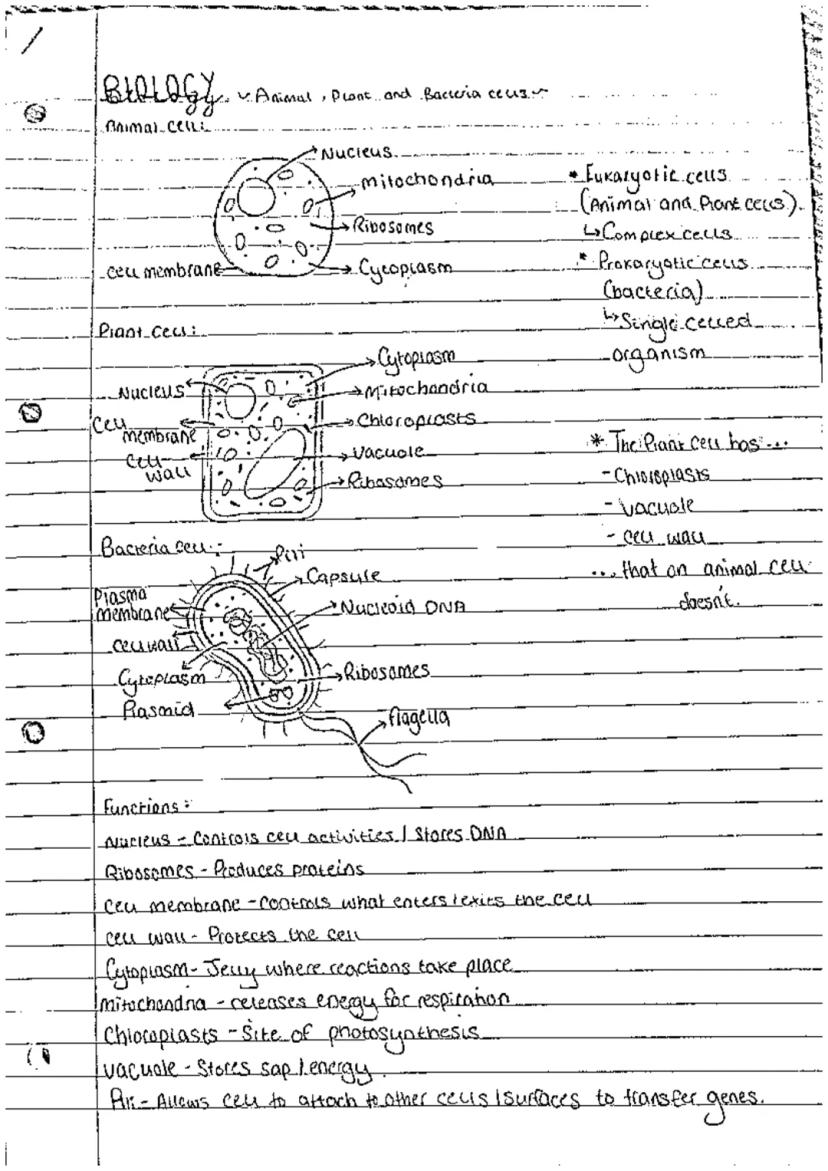 BIOLOGY ~ Animal, Plant and Bacteria cells ~
Animal cell:
Nucleus
Mitochondria
Ribosomes
cell membrane
Cytoplasm
* Eukaryotic cells
(Animal and Plant cells)
↳ Complex cells
* Prokaryotic cells
(bacteria)
↳ Single celled
organism
Plant cell:
Cytoplasm
Nucleus
Mitochondria
Cell membrane
Chloroplasts
Cell wall
Vacuole
Ribosomes
* The Plant cell has ...
- Chloroplasts
- Vacuole
- cell wall
... that an animal cell
doesn't.
Bacteria cell:
Pili
Capsule
Plasma membrane
Nucleoid DNA
cell wall
Cytoplasm
Ribosomes
Plasmid
flagella
Functions:
Nucleus - Controls cell activities / Stores DNA
Ribosomes - Produces proteins
cell membrane - controls what enters / exits the cell
cell wall - Protects the cell
Cytoplasm - Jelly where reactions take place
Mitochondria - releases energy for respiration
Chloroplasts - Site of photosynthesis
Vacuole - Stores sap / energy
Pili - Allows cell to attach to other cells / surfaces to transfer genes.